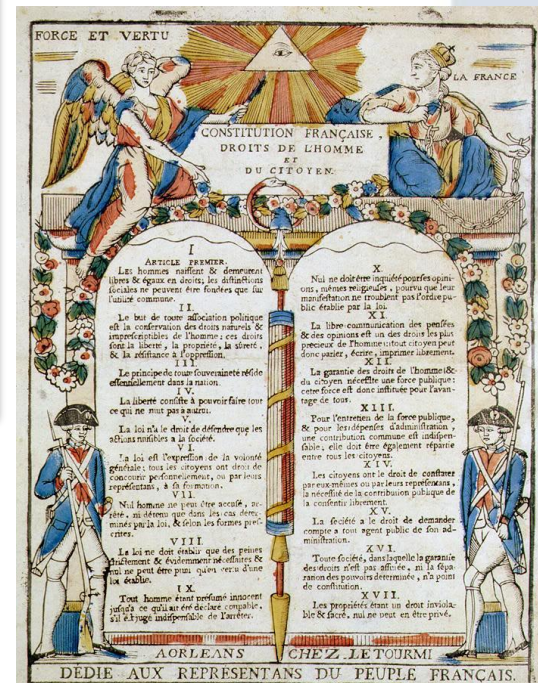 FORCE ET VERTU
LA FRANCE
CONSTITUTION FRANÇAISE,
DROITS DE L'HOMME
ET
DU CITOYEN.
I
ARTICLE PREMIER.
Les hommes naissent & demeurent
libres & égaux en droits; les distinctions
sociales ne peuvent être fondées que sur
l'utilité commune.
II.
Le but de toute association politique
est la conservation des droits naturels &
imprescriptibles de l'homme; ces droits
sont la liberté, la propriété, la sûreté,
& la résistance à l'oppression.
III.
Le principe de toute souveraineté réside
essentiellement dans la nation.
IV.
La liberté consiste à pouvoir faire tout
ce qui ne nuit pas à autrui.
V.
La loi n'a le droit de défendre que les
actions nuisibles à la société.
VI.
La loi est l'expression de la volonté
générale; tous les citoyens ont droit de
concourir personnellement, ou par leurs
représentans, à sa formation.
VII.
Nul homme ne peut être accusé, ar-
rêté, ni détenu que dans les cas déter-
minés par la loi, & selon les formes pres-
crites.
VIII.
La loi ne doit établir que des peines
strictement & évidemment nécessaires &
nul ne peut être puni qu'en vertu d'une
loi établie.
IX.
Tout homme étant présumé innocent
jusqu'à ce qu'il ait été déclaré coupable,
s'il est jugé indispensable de l'arrêter.
X
Nul ne doit être inquiété pour ses opini-
ons, mêmes religieuses, pourvu que leur
manifestation ne troublent pas l'ordre pu-
blic établie par la loi.
XI.
La libre communication des pensées
& des opinions est un des droits les plus
précieux de l'homme: tout citoyen peut
donc parler, écrire, imprimer librement.
XII.
La garantie des droits de l'homme & 
du citoyen nécessite une force publique:
cette force est donc instituée pour l'avan-
tage de tous.
XIII.
Pour l'entretien de la force publique,
& pour les dépenses d'administration,
une contribution commune est indispen-
sable; elle doit être également répartie
entre tous les citoyens.
XIV.
Les citoyens ont le droit de constater
par eux-mêmes ou par leurs représentans,
la nécessité de la contribution publique de
la consentir librement.
XV.
La société a le droit de demander
compte a tout agent public de son ad-
ministration.
XVI.
Toute société, dans laquelle la garantie
des droits n'est pas assurée, ni la sépa-
ration des pouvoirs déterminée, n'a point
de constitution.
XVII.
Les propriétés étant un droit inviola-
ble & sacré, nul ne peut en être privé.
A ORLEANS CHEZ LETOURMI
DÉDIÉ AUX REPRESENTANS DU PEUPLE FRANÇAIS.